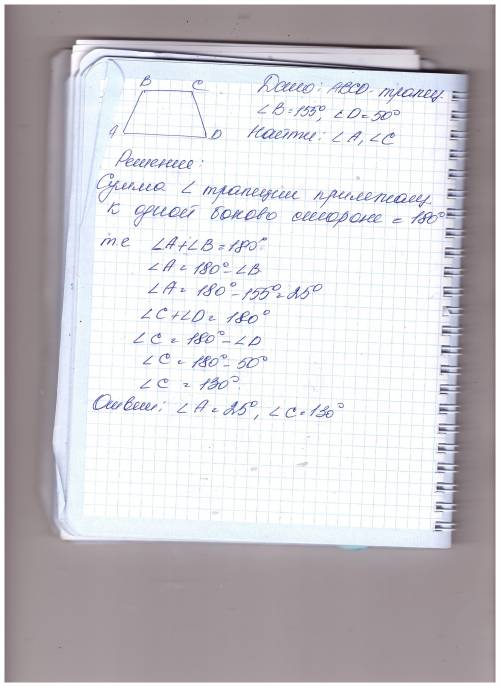 B C
A D
Дано: ABCD-трапец.
∠B=155°, ∠D=50°
Найти: ∠A, ∠C
Решение:
Сумма ∠ трапеции прилежащ.
к одной боково стороне = 180°
т.е ∠A+∠B=180°.
∠A=180°-∠B
∠A=180°-155°=25°
∠C+∠D=180°
∠C=180°-∠D
∠C=180°-50°
∠C=130°.
Ответ: ∠A=25°, ∠C=130°